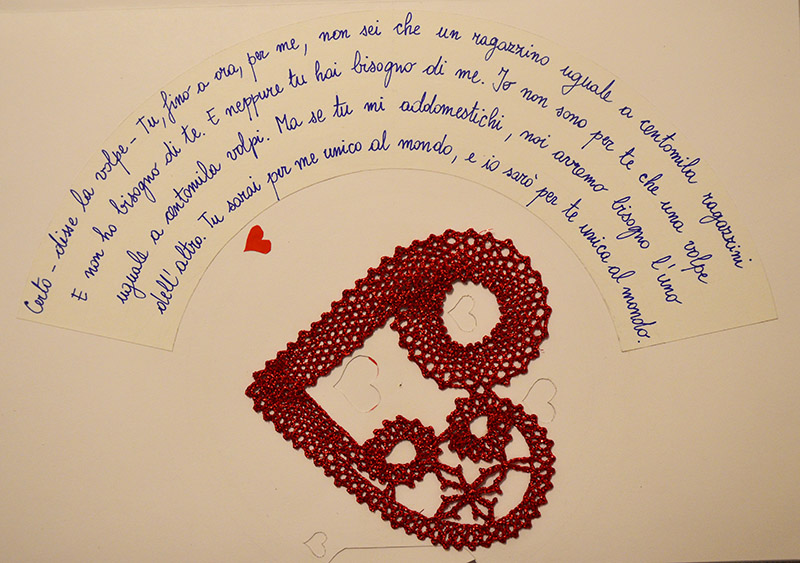 Certo - disse la volpe - Tu, fino a ora, per me, non sei che un ragazzino uguale a centomila ragazzini
E non ho bisogno di te. E neppure tu hai bisogno di me. Io non sono per te che una volpe
uguale a centomila volpi. Ma se tu mi addomestichi, noi avremo bisogno l'uno
dell'altro. Tu sarai per me unico al mondo, e io sarò per te unica al mondo.